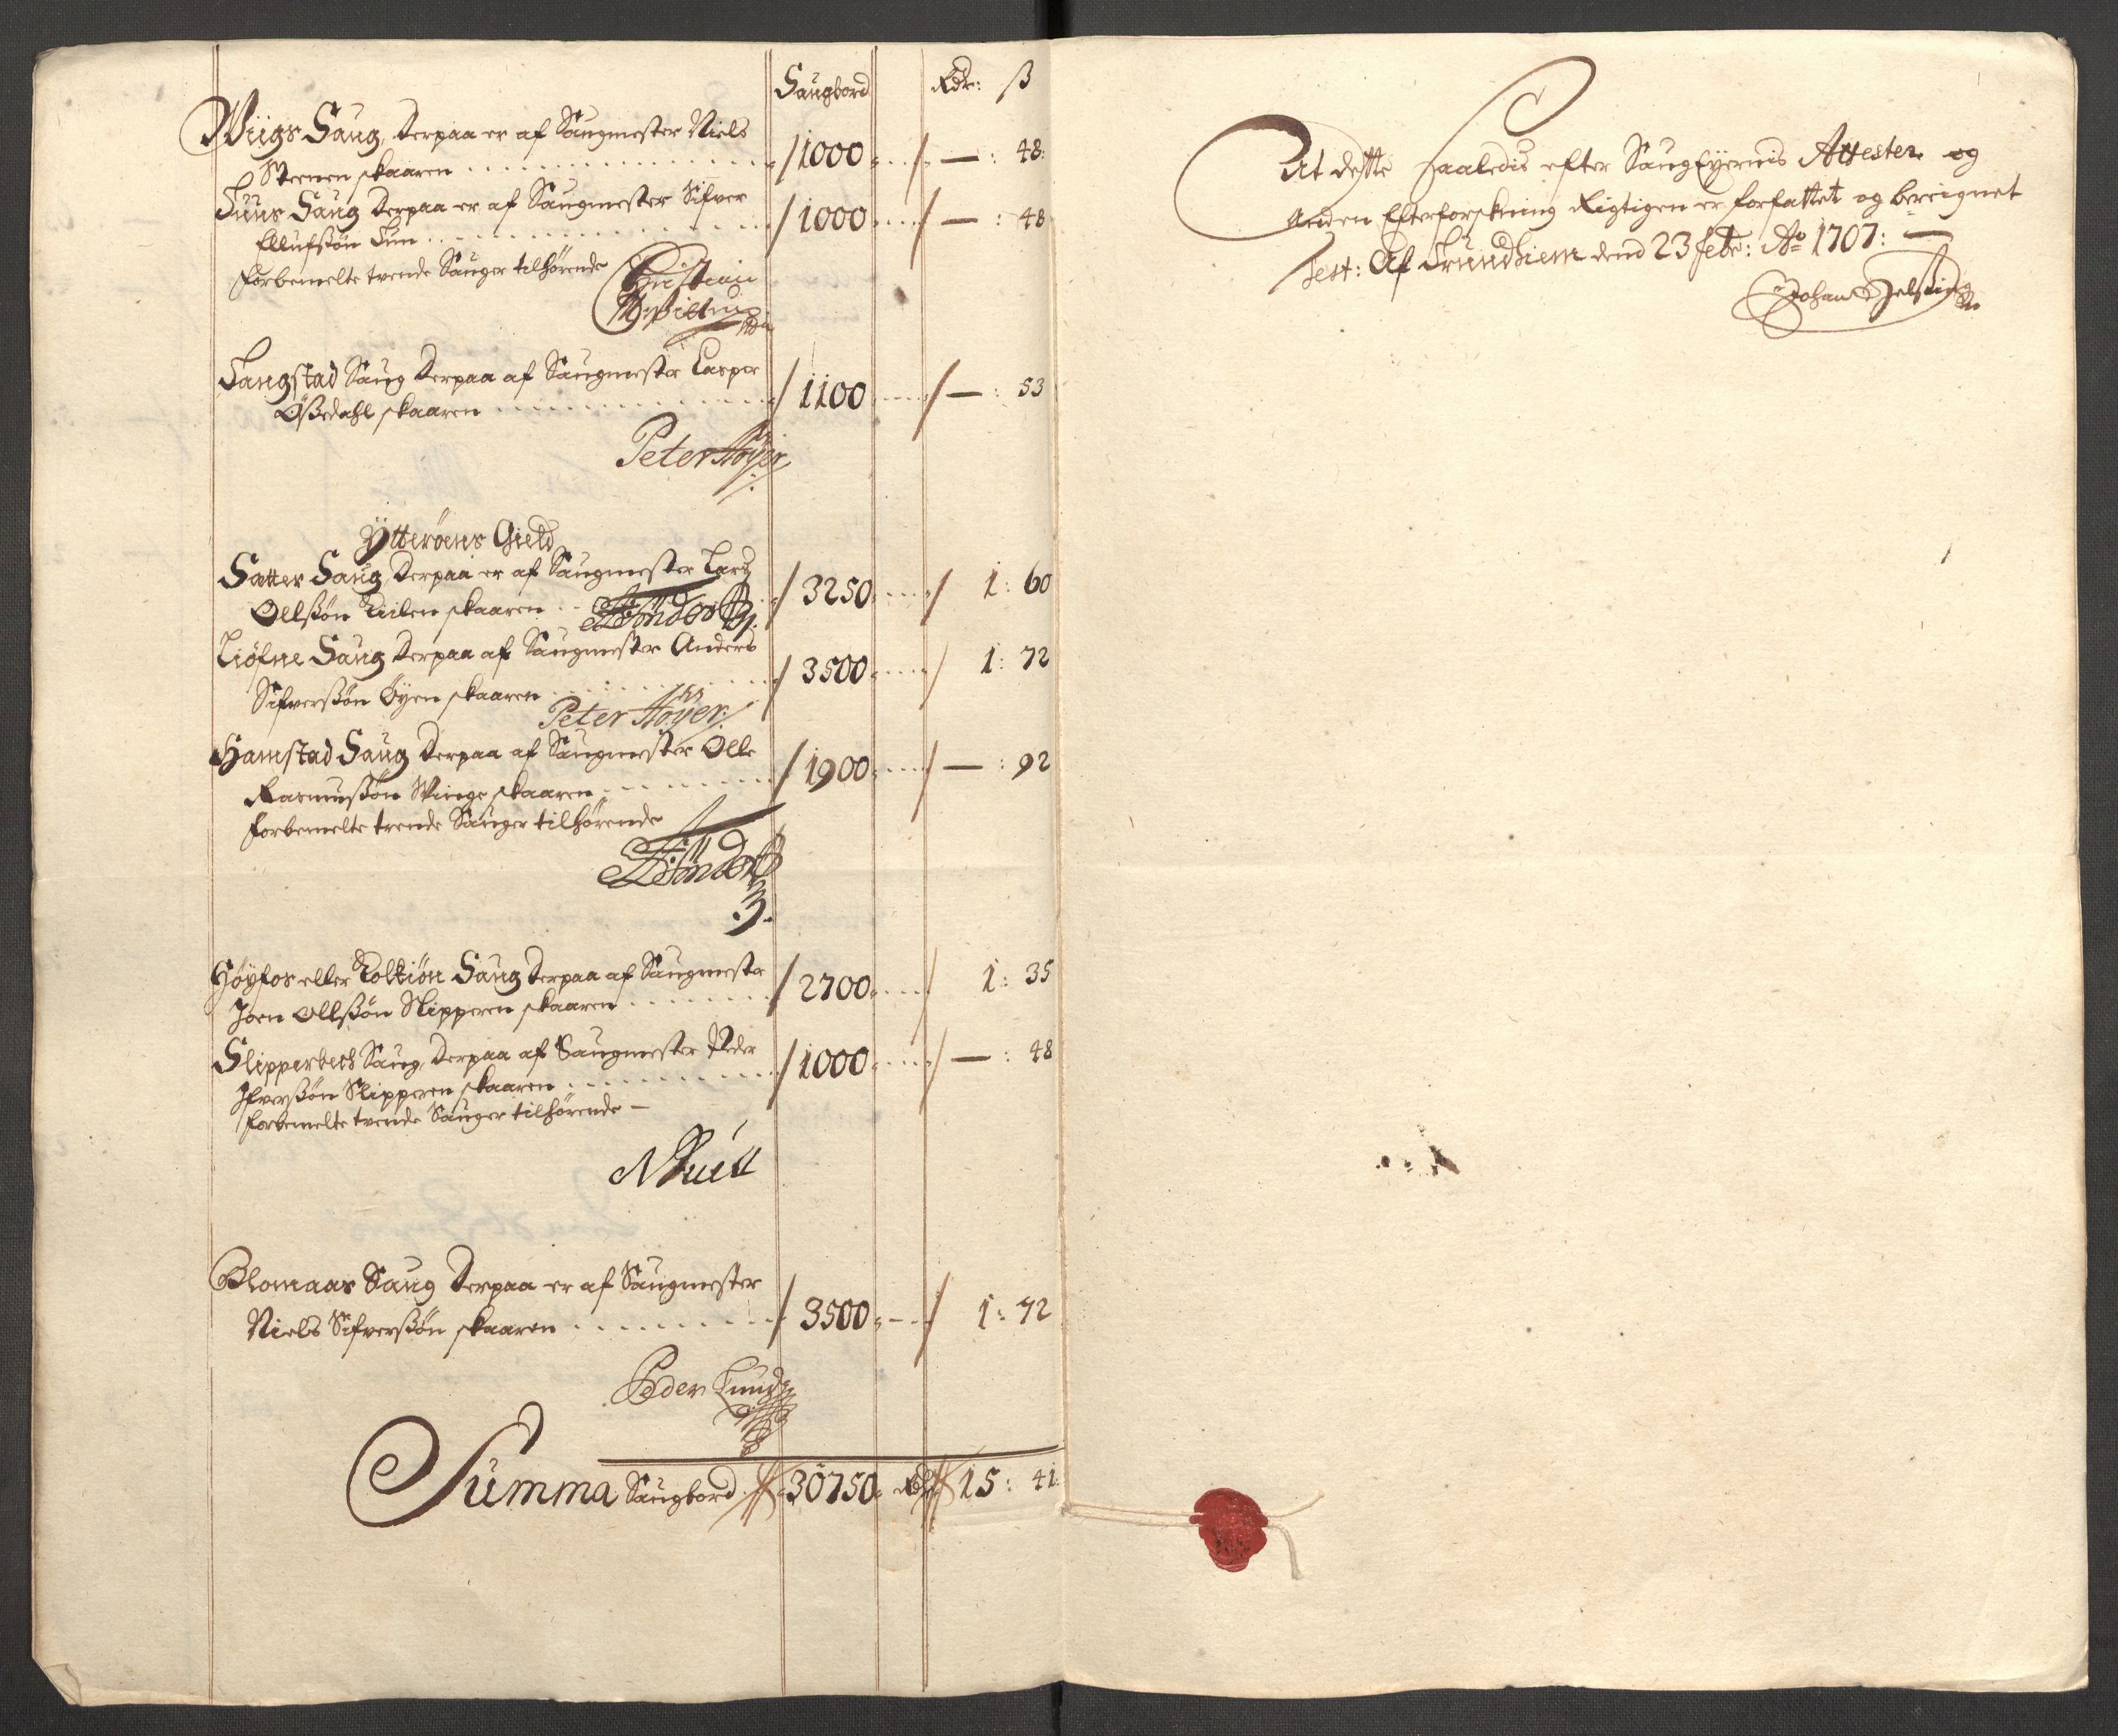 Saugbord Rdr: ß
Wiigs Saug, derpaa er af Saugmester Niels
Steenen skaaren / 1000 / — : 48:
Tuus Saug derpaa er af Saugmester Sifver
Ellufsøn Tuu / 1000 / — : 48
forbemelte tvende Sauger tilhørende
Christian
Langstad Saug derpaa af Saugmester Casper
Øssedahl skaaren / 1100 / — : 53
Peter Høyer
Ytterøens Gield
Sætter Saug derpaa er af Saugmester Lars
Ollssøn skaaren / 3250 / 1: 60
Liøfne Saug derpaa af Saugmester Anders
Sifverssøn Øyen skaaren / 3500 / 1: 72
Peter Høyer
Hamstad Saug derpaa af Saugmester Olle
Rasmussøn Winge skaaren / 1900 / — : 92
forbemelte trende Sauger tilhørende
Høyfos eller Saug derpaa af Saugmester
Joen Ollssøn Slipperen skaaren / 2700 / 1: 35
Slipperbech Saug, derpaa af Saugmester Peder
Ifverssøn Slipperen skaaren / 1000 / — : 48
forbemelte tvende Sauger tilhørende —
Blomaas Saug derpaa er af Saugmester
Niels Sifverssøn skaaren / 3500 / 1: 72
Peder Lund
Summa Saugbord 30750 Rdr 15: 41:
At dette saaledis efter Saugeyernis Attester og
anden Efterforskning Rigtigen er forfattet og bereignet
test: Af Trundhiem dend 23 febr: Ao 1707: —
Johan